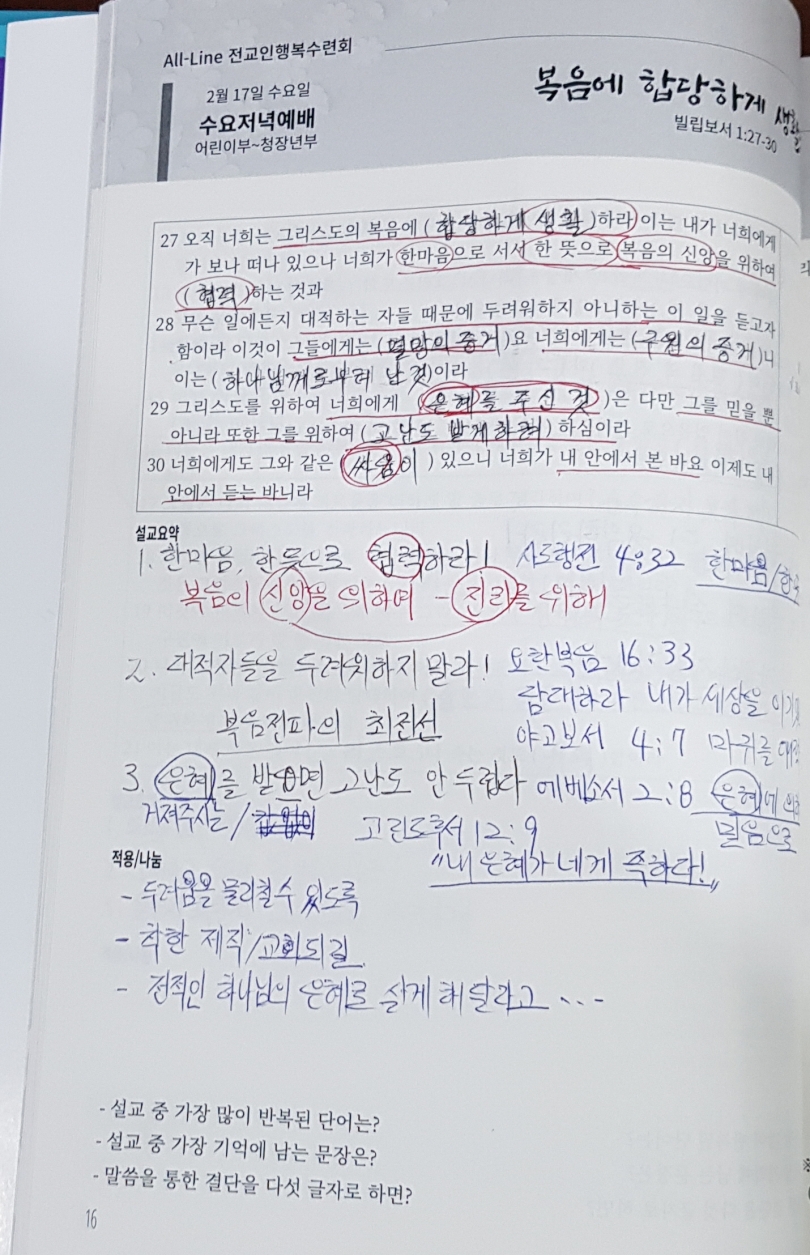 All-Line 전교인행복수련회
2월 17일 수요일
수요저녁예배
어린이부~청장년부
복음에 합당하게 생활
빌립보서 1:27-30
27 오직 너희는 그리스도의 복음에 (합당하게 생활)하라 이는 내가 너희에게
가 보나 떠나 있으나 너희가 한마음으로 서서 한 뜻으로 복음의 신앙을 위하여
(협력)하는 것과
28 무슨 일에든지 대적하는 자들 때문에 두려워하지 아니하는 이 일을 듣고자
함이라 이것이 그들에게는 (멸망의 증거)요 너희에게는 (구원의 증거)니
이는 (하나님께로부터 난 것)이라
29 그리스도를 위하여 너희에게 (은혜를 주신 것)은 다만 그를 믿을 뿐
아니라 또한 그를 위하여 (고난도 받게하려) 하심이라
30 너희에게도 그와 같은 (싸움이) 있으니 너희가 내 안에서 본 바요 이제도 내
안에서 듣는 바니라
설교요약
1. 한마음, 한뜻으로 협력하라! 사도행전 4:32 한마음/한
복음의 신앙을 위하여 - 진리를 위해
2. 대적자들을 두려워하지 말라! 요한복음 16:33
담대하라 내가 세상을 이기
복음전파의 최전선 야고보서 4:7 마귀를 대적
3. 은혜를 받으면 고난도 안 두렵다 에베소서 2:8 은혜에 의하
거져주시는/ 고린도후서 12:9 믿음으로
"내 은혜가 네게 족하다!"
적용/나눔
- 두려움을 물리칠수 있도록
- 착한 제직/교회되길
- 전적인 하나님의 은혜로 살게 해달라고 ...
- 설교 중 가장 많이 반복된 단어는?
- 설교 중 가장 기억에 남는 문장은?
- 말씀을 통한 결단을 다섯 글자로 하면?
16